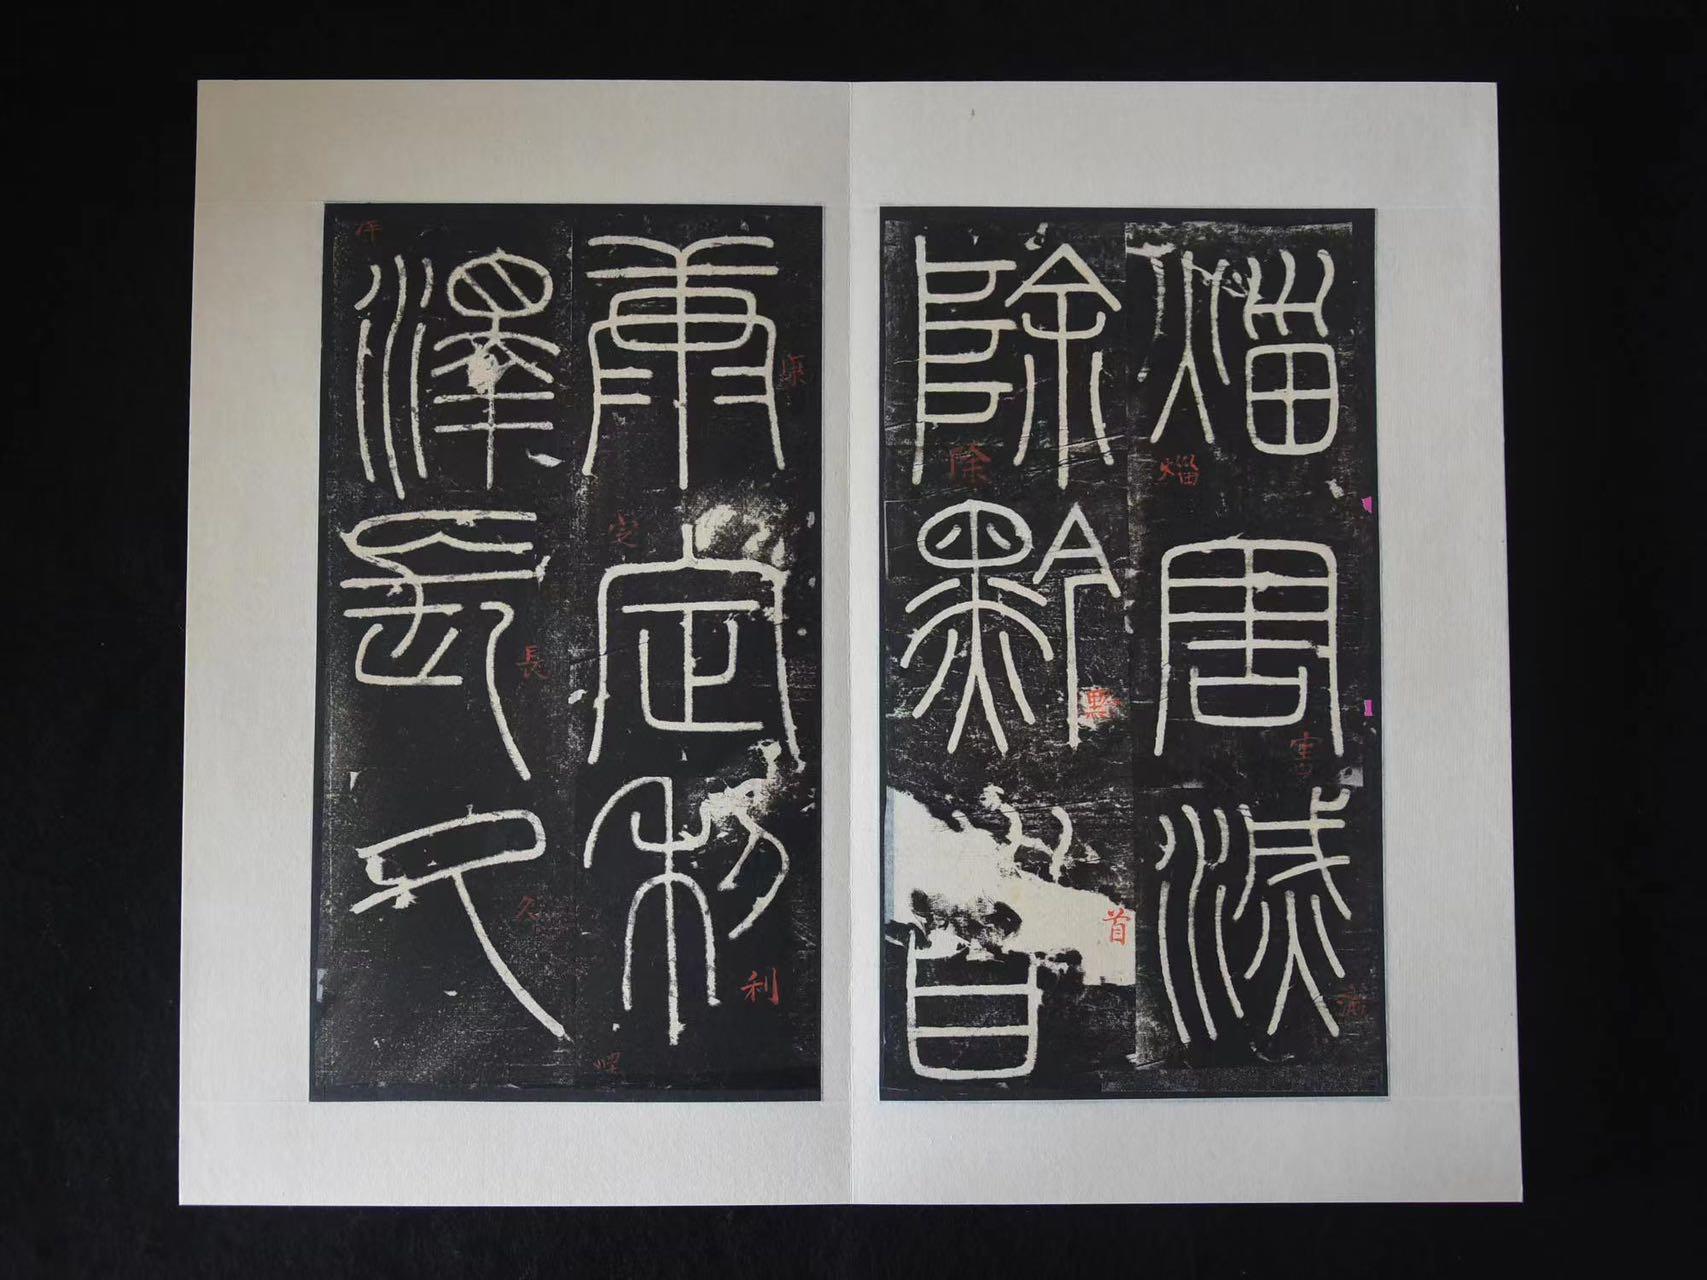 甾害滅
除黔首
康定利
澤長久